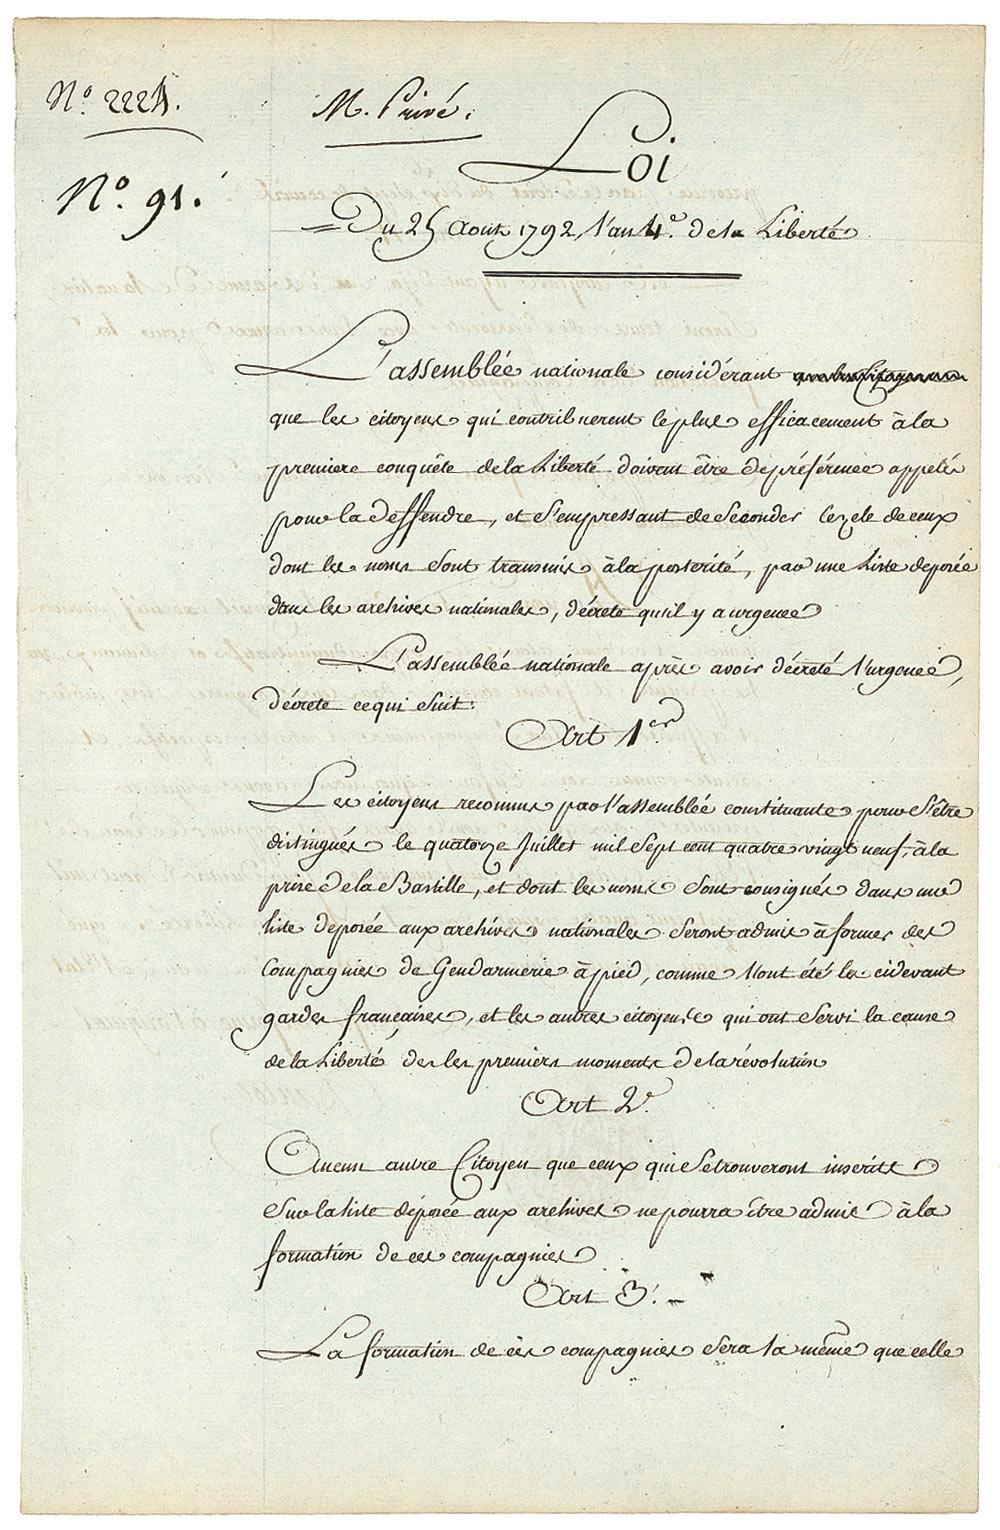 N.° 2224.
M. Privé.
N.° 91.
Loi
Du 25 Aout 1792, l'an 4.e de la Liberté
L'assemblée nationale considérant que les Citoyens
que les citoyens qui contribuerent le plus efficacement à la
premiere conquête de la Liberté doivent être de préférence appelés
pour la deffendre, et s'empressant de seconder le zele de ceux
dont les noms sont transmis à la postérité, par une Liste deposée
dans les archives nationales, décrete qu'il y a urgence
L'assemblée nationale après avoir décrété l'urgence,
décrete ce qui suit:
Art 1er
Les citoyens reconnus par l'assemblée constituante pour s'être
distingués le quatorze Juillet mil sept cent quatre vingt neuf, à la
prise de la Bastille, et dont les noms sont consignés dans une
liste deposée aux archives nationales seront admis à former des
Compagnies de Gendarmerie à pied, comme l'ont été les cidevant
gardes françaises, et les autres citoyens qui ont servi la cause
de la Liberté des les premiers moments de la révolution
Art 2.e
Aucun autre Citoyen que ceux qui se trouveront inscrits
sur la liste déposée aux archives ne pourra être admis à la
formation de ces compagnies
Art 3. -
La formation de ces compagnies sera la même que celle